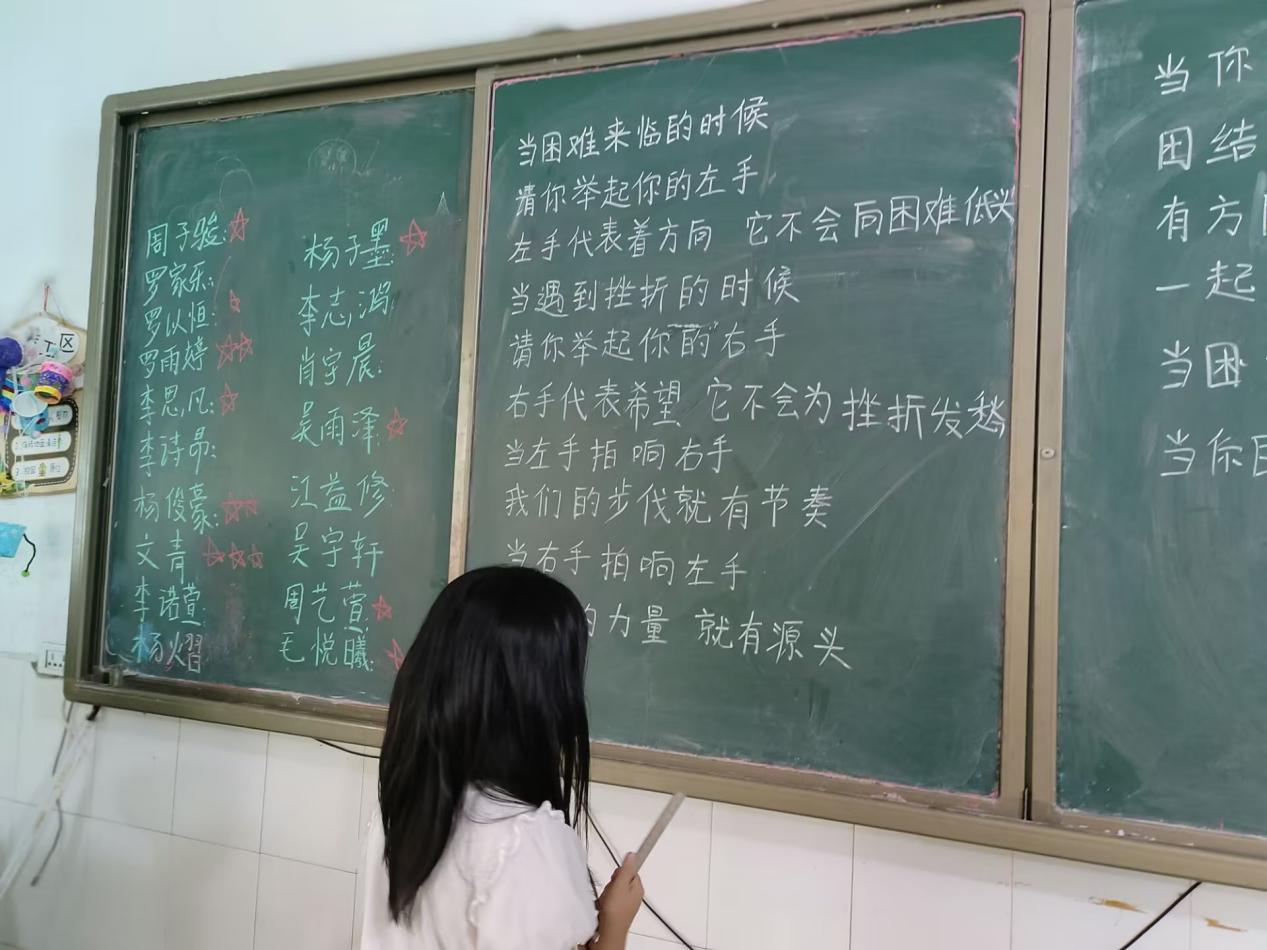 周子骏:
罗家乐:
罗以恒:
罗雨婷
李思凡:
李诗昂:
杨俊豪:
文青
李诺萱:
杨熠
杨子墨:
李志鸿
肖宇晨:
吴雨泽:
江益修:
吴宇轩
周艺萱:
毛悦曦:
当困难来临的时候
请你举起你的左手
左手代表着方向 它不会向困难低头
当遇到挫折的时候
请你举起你的右手
右手代表希望 它不会为挫折发愁
当左手拍响右手
我们的步伐就有节奏
当右手拍响左手
的力量 就有源头
当你
团结
有方
一起
当困
当你
区